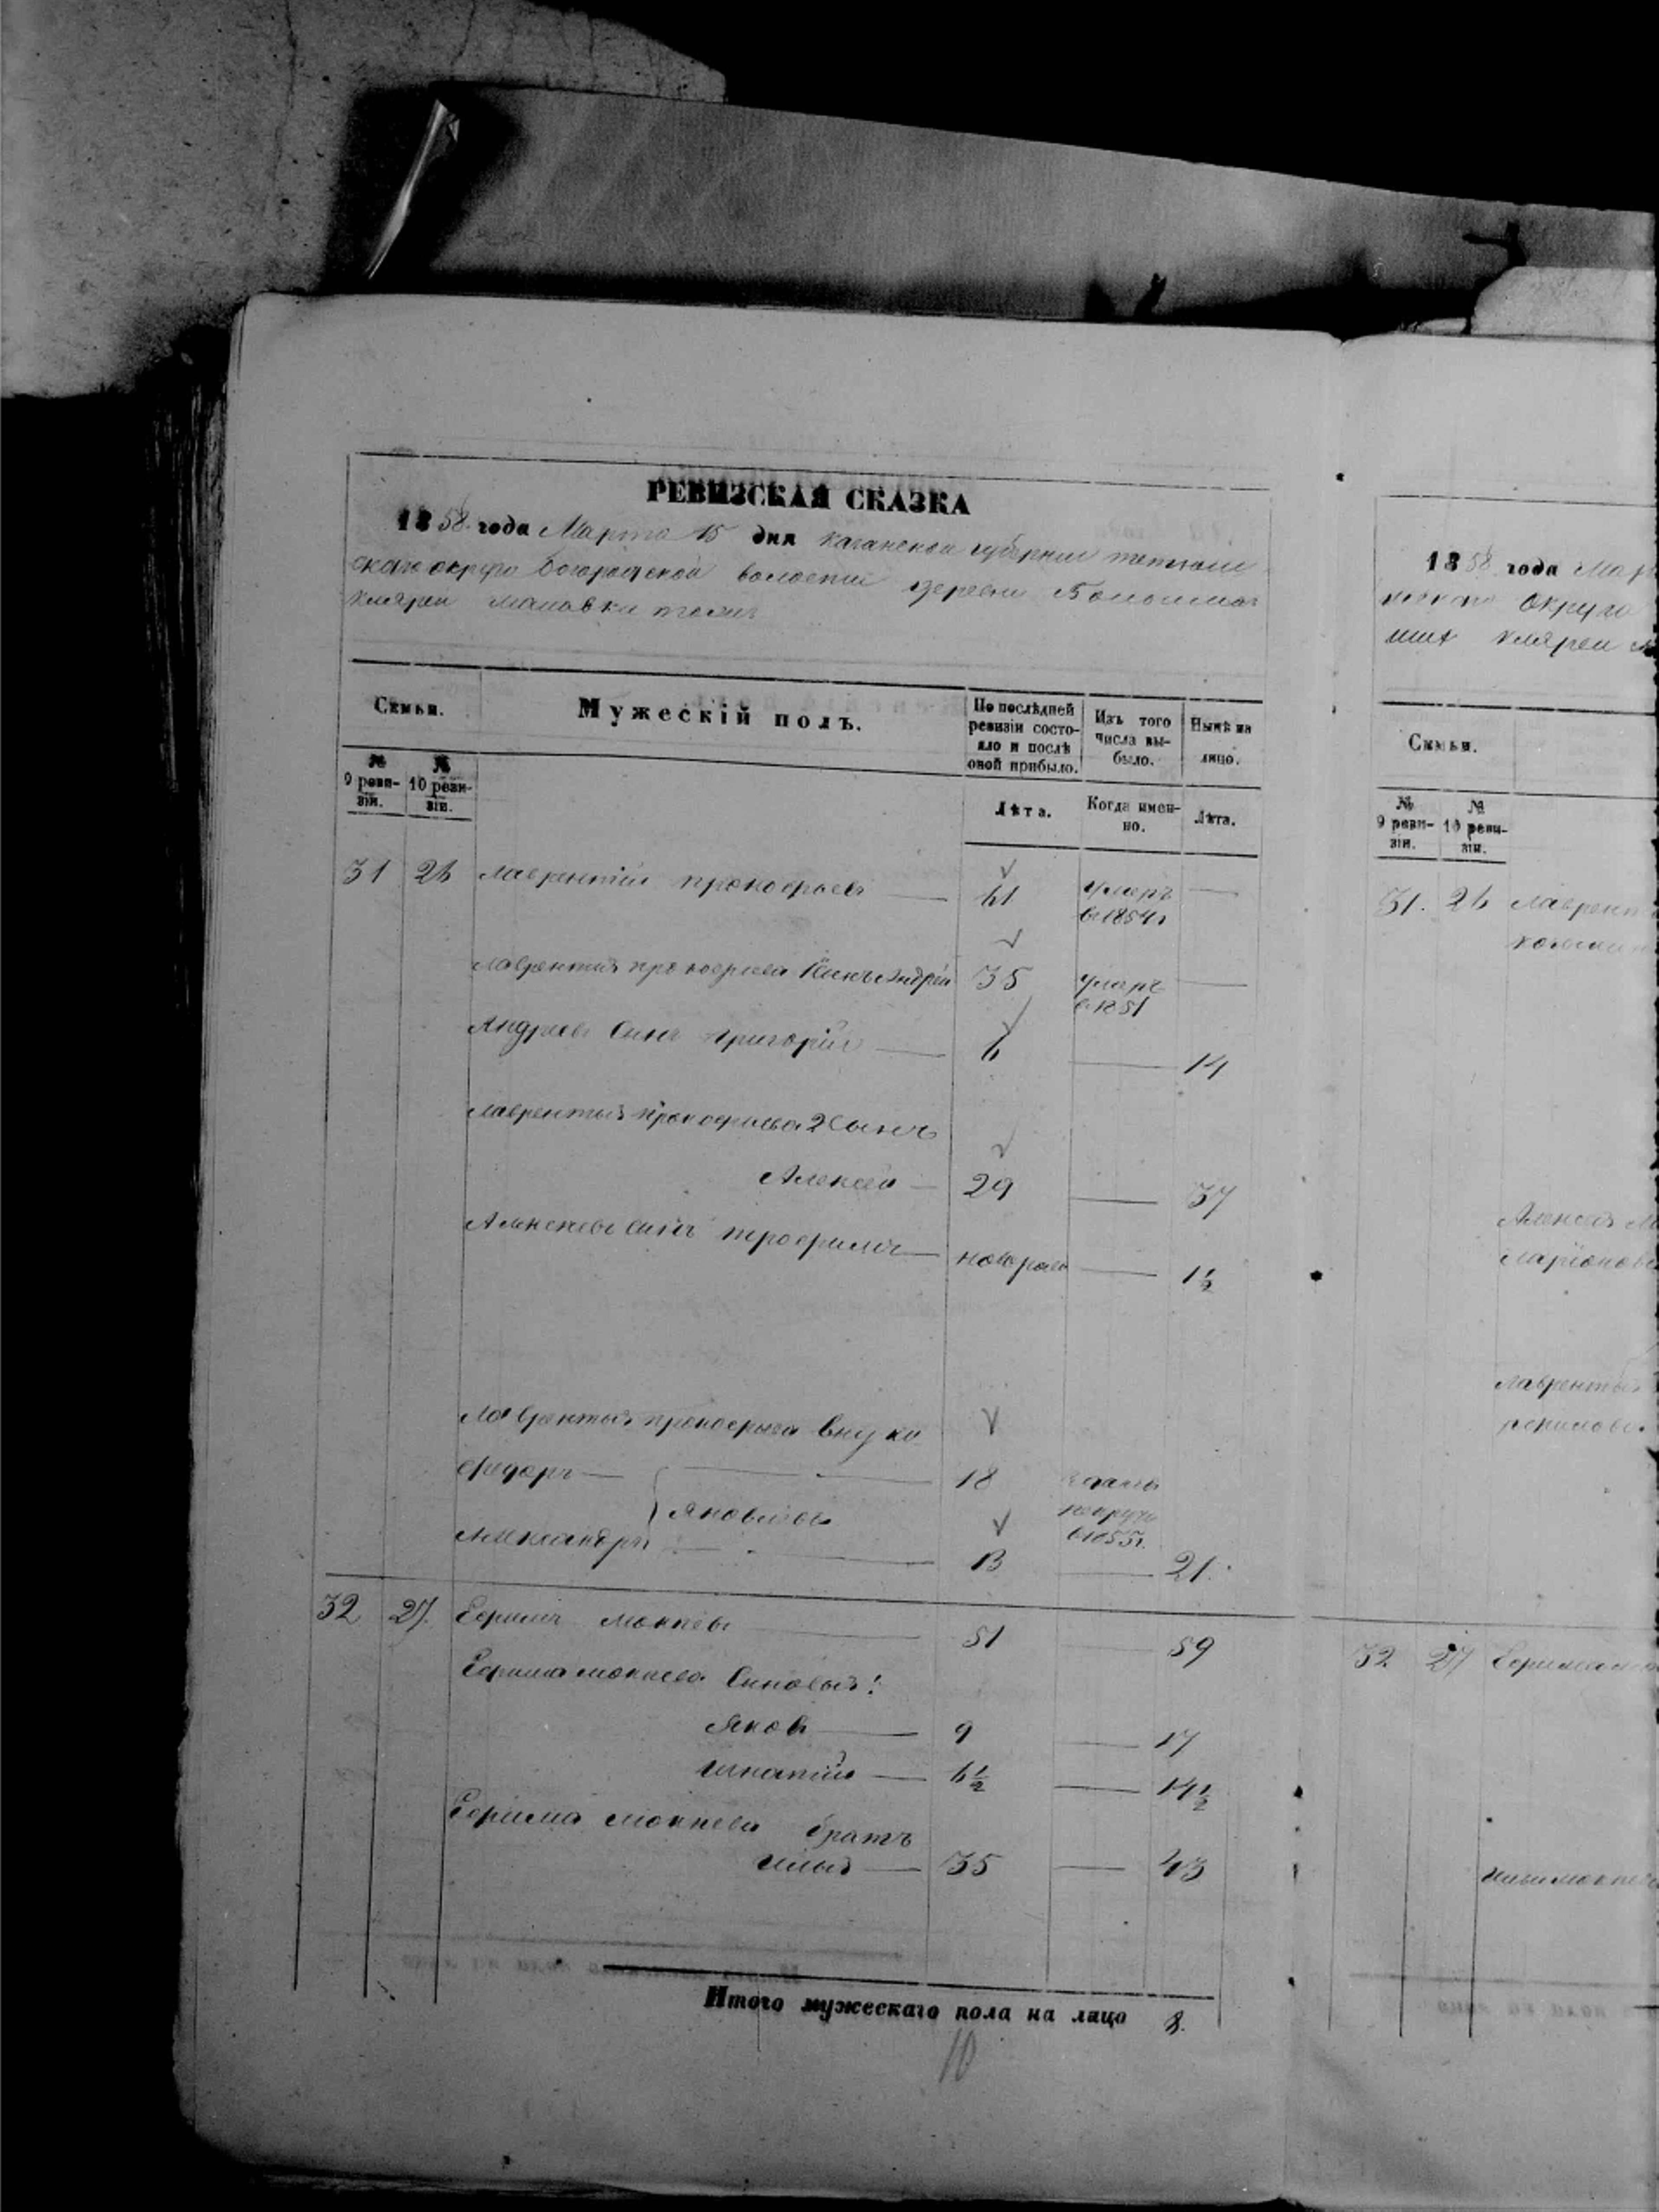 РЕВИЗСКАЯ СКАЗКА
1858 года Марта 15 дня Казанской губернии тетюш
скаго округа Богородской волости деревни Большихъ
кляреи Маловка тожъ
Семьи.
Мужескій полъ.
По послѣдней ревизіи состо-
яло и послѣ
оной прибыло.
Изъ того
числа вы-
было.
Нынѣ на
лицо.
№
9 реви-
зіи.
№
10 реви-
зіи.
Лѣта.
Когда имен-
но.
Лѣта.
31 26 Лаврентій прокофьевъ — 61 умеръ —
в 1854г
Лаврентья прокофьева Сынъ Андрей 35 умеръ —
в 1851
Андреевъ Сынъ григорій — 6 — 14
Лаврентья прокофьева 2 Сынъ
Алексей — 29 — 37
Алексеевъ Сынъ трофимъ — новорож — 1½
Лаврентья прокофьева внуки
федоръ — 18
Яковлевы
Александръ — 13 — 21.
рекруты
в 1855г.
32 27. Ефимъ Мокеевъ — 51 — 59
Ефима мокеева Сыновья:
Яковъ — 9 — 17
игнатій — 6½ — 14½
Ефима Мокеева братъ
илья — 35 — 43
Итого мужескаго пола на лицо 8.
10
1858 года Мар
округа
кляреи
Семьи.
№
9 реви-
зіи.
№
10 реви-
зіи.
31. 26 Лаврент
Алексея
Ларіонов
Лаврентья
32 27 Ефима